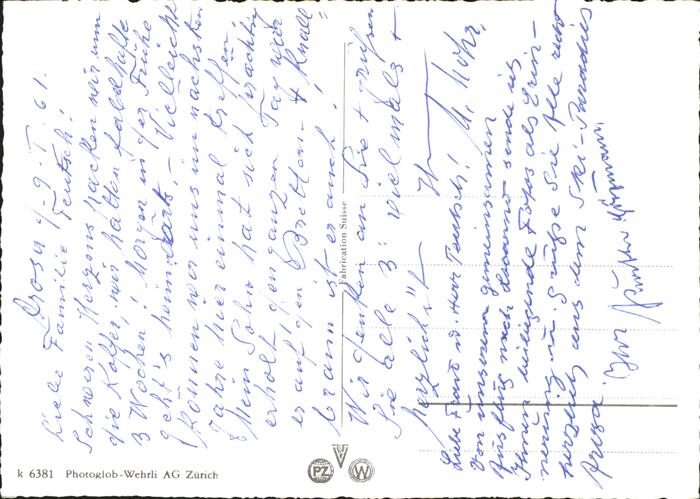 Arosa, 9. I. 61.
Liebe Familie Teutsch!
Schweren Herzens packen wir um
die Koffer, wir hatten fabelhafte
3 Wochen! Morgen in der Früh
geht's heimwärts. – Vielleicht
können wir uns im nächsten
Jahre hier einmal treffen.
Mein Sohn hat sich prächtig
erholt, den ganzen Tag war
er auf den Brettern + Knall-
braun ist er auch!
Wir denken an Sie + grüssen
Sie alle 3 vielmals +
herzlichst
Liebe Frau u. Herr Teutsch!
Von unserem gemeinsamen
Ausflug nach sende ich
Ihnen beiliegende Fotos als Erin-
nerung. Grüße Sie alle recht
herzlich aus dem Ski-Paradies
Arosa
Ihr Günther
Fabrication Suisse
k 6381 Photoglob-Wehrli AG Zürich
PZ W